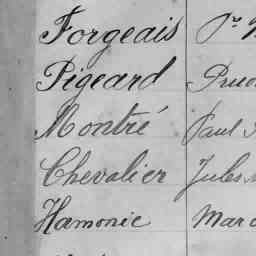 Forgeais
Pigeard
Montré Paul
Chevalier Jules
Hamonic